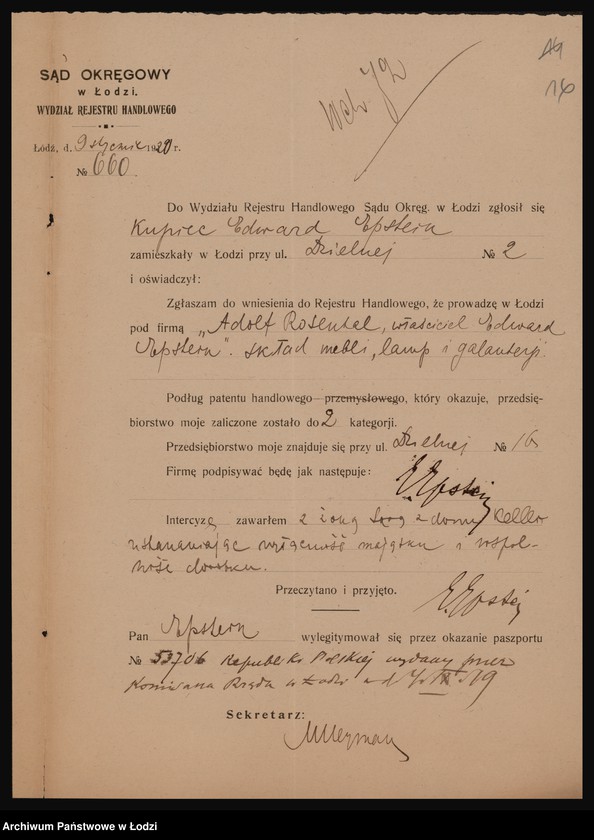 SĄD OKRĘGOWY
w Łodzi.
WYDZIAŁ REJESTRU HANDLOWEGO
Łódź, d. 9 stycznia 1920 r.
№ 660
16
Do Wydziału Rejestru Handlowego Sądu Okręg. w Łodzi zgłosił się
Kupiec Edward Epstein
zamieszkały w Łodzi przy ul. Dzielnej № 2
i oświadczył:
Zgłaszam do wniesienia do Rejestru Handlowego, że prowadzę w Łodzi
pod firmą „Adolf Rosental, właściciel Edward
Epstein". skład mebli, lamp i galanterji.
Podług patentu handlowego przemysłowego, który okazuje, przedsię-
biorstwo moje zaliczone zostało do 2 kategorji.
Przedsiębiorstwo moje znajduje się przy ul. Dzielnej № 16
Firmę podpisywać będę jak następuje:
E. Epstein
Intercyzę zawarłem z żoną z domu Keller
ustanawiając wyłączność majątku i wspól-
ność dorobku.
Przeczytano i przyjęto.
E. Epstein
Pan Epstein wylegitymował się przez okazanie paszportu
№ 53706 Republiki Polskiej wydany przez
Komisarza Rządu w Łodzi
Sekretarz:
Archiwum Państwowe w Łodzi